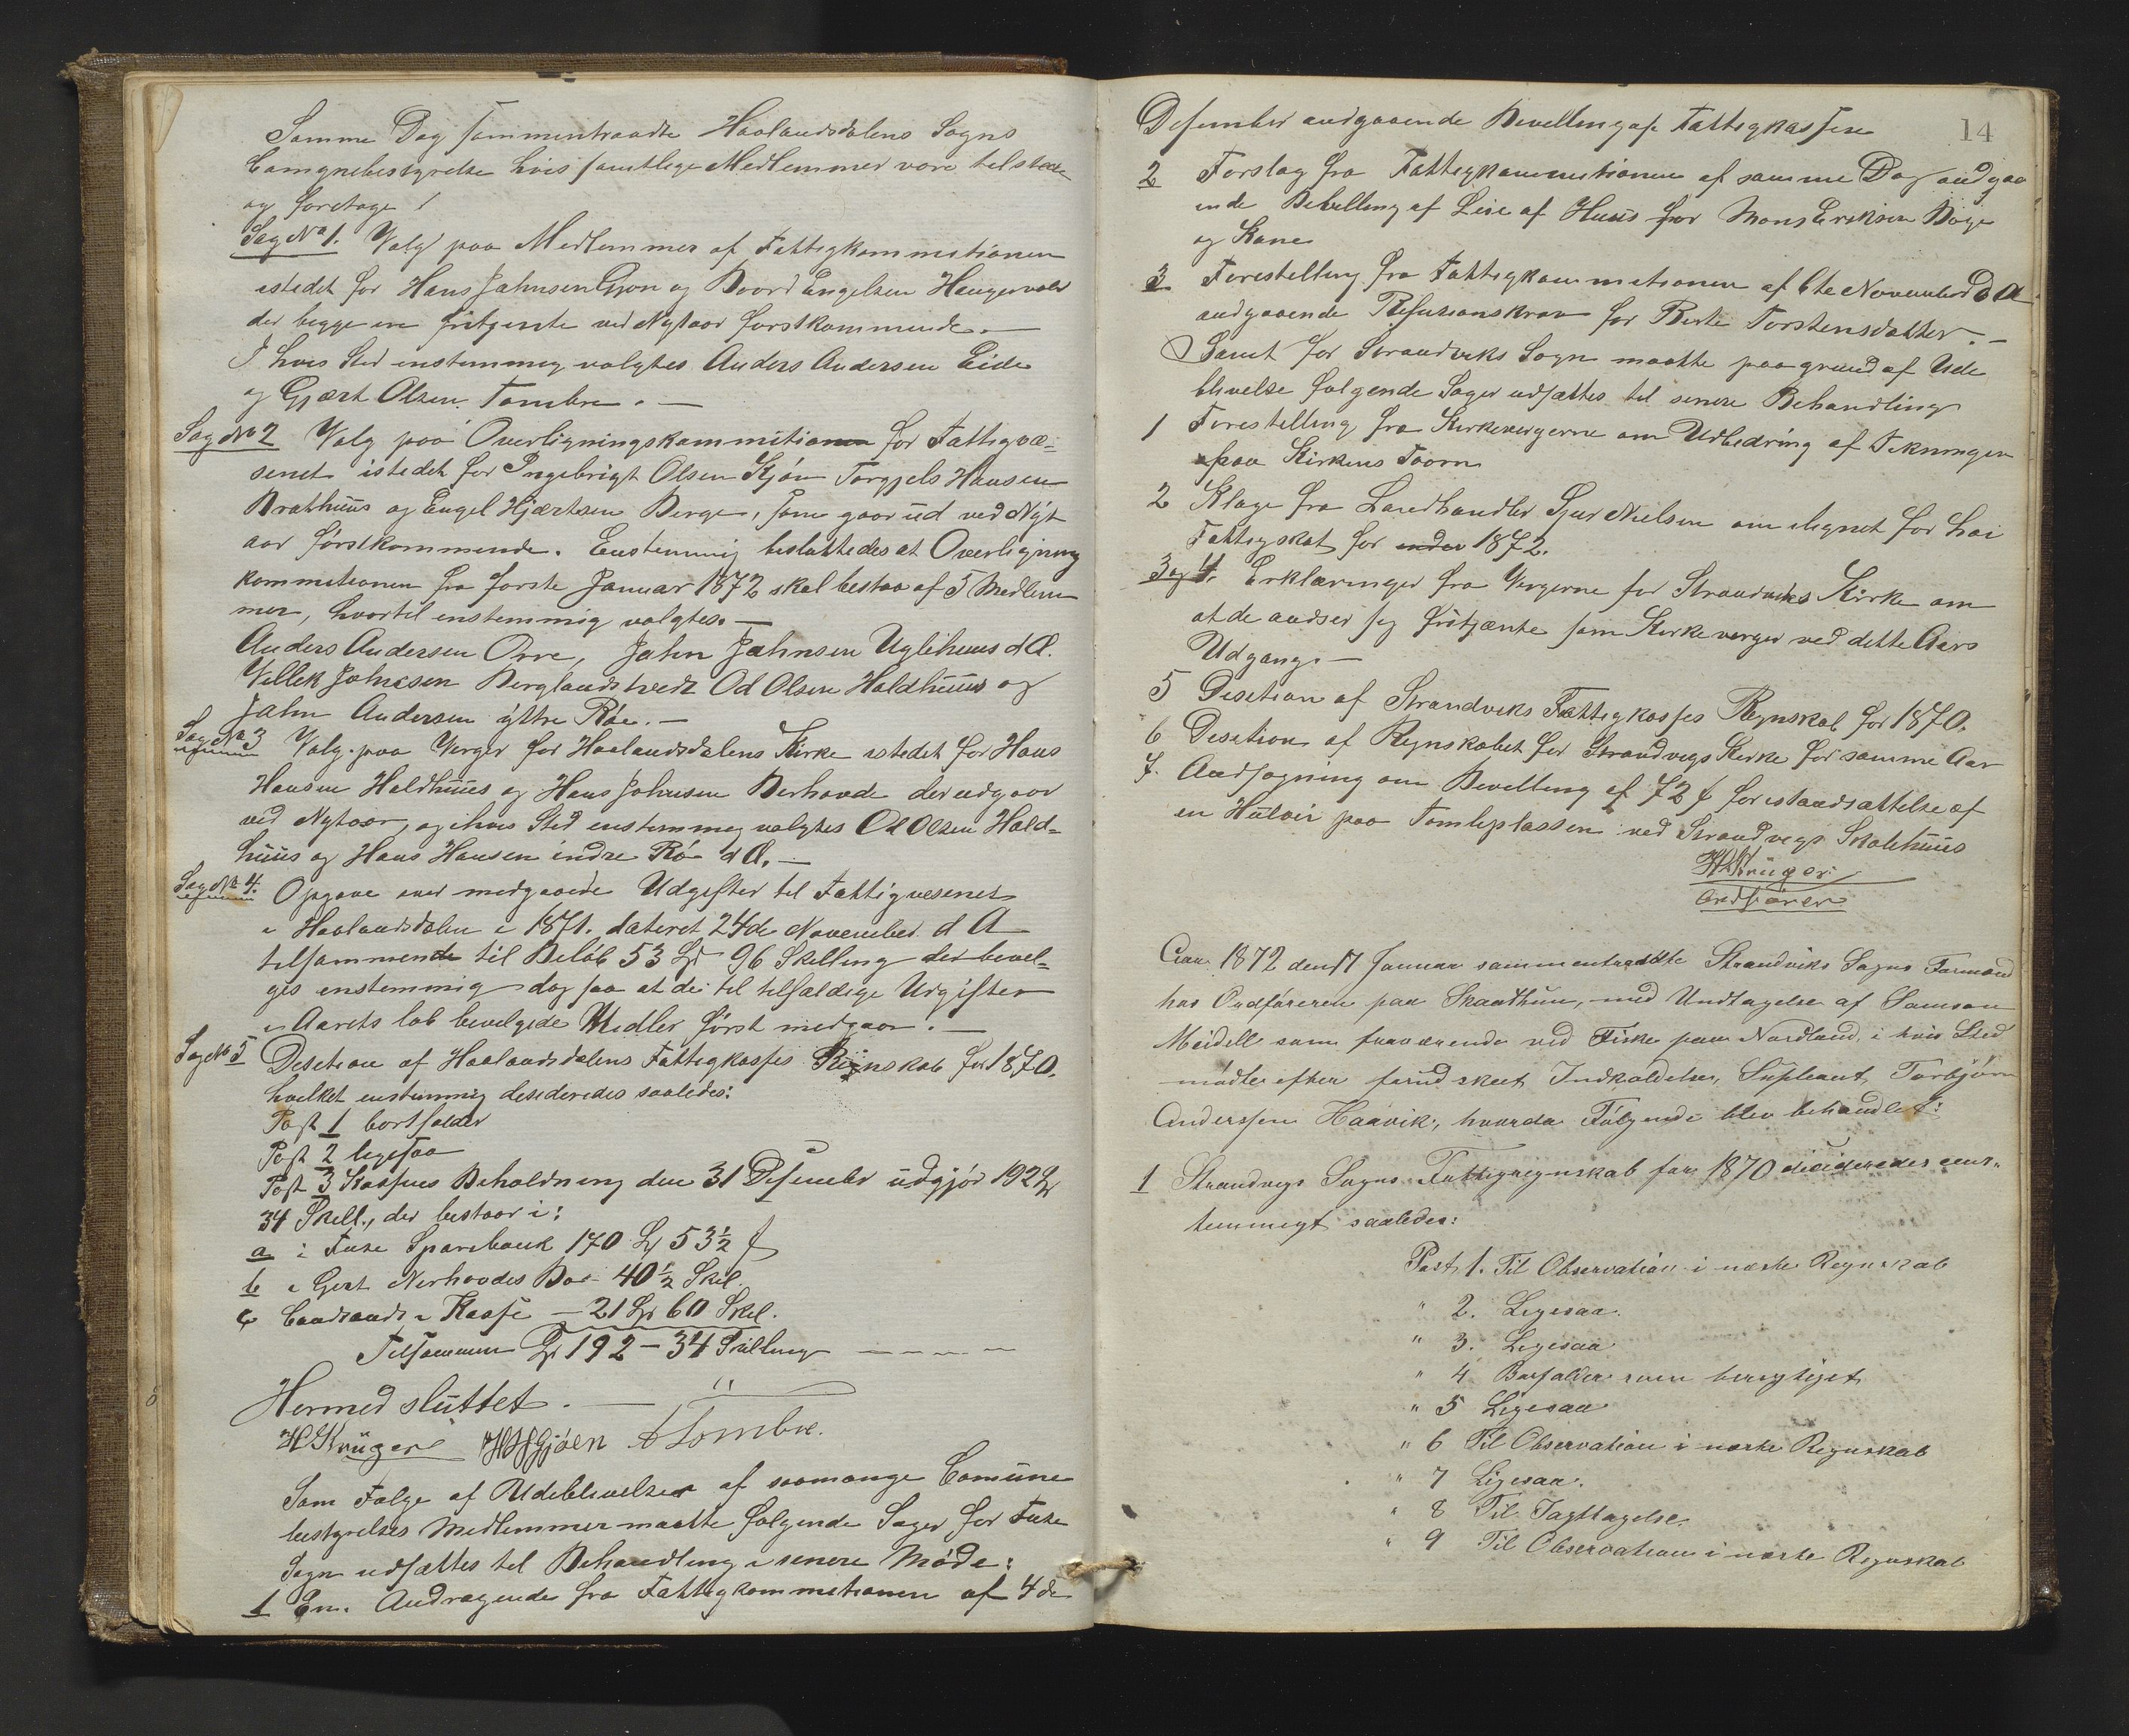 Samme Dag sammentraadte Haalandsdalens Sogns
Comunebestyrelse hvis samtlige Medlemmer vare tilstæde
og foretoge
Sag No 1. Valg paa Medlemmer af Fattigkommitionen
istedet for Hans Jahnsen Gjøn og Baard Engelsen
der begge ere fritjente ved Nytaar førstkommende. —
I hvis Sted enstemmig valgtes Anders Andersen Eide
og Gjært Olsen Tombre. —
Sag No 2 Valg paa Overligningskommitionen for Fattigvæ-
senet istedet for Ingebrigt Olsen Kjøn Torgjels Hansen
Brathuus og Engel Hjartsen Berge, som gaar ud ved Nyt
aar førstkommende. Enstemmig besluttedes at Overligning
kommitionen fra første Januar 1872 skal bestaa af 5 Medlem
mer, hvortil enstemmig valgtes. —
Anders Andersen Orre, Jahn Jahnsen Uglehuus d Æ.
Villik Johnsen Berglandstvedt Od Olsen Haldhuus og
Jahn Andersen ÿttre Røe. —
Sag No 3 Valg paa Verger for Haalandsdalens Kirke istedet for Hans
Hansen Haldhuus og Hans Johnsen Berhovde der udgaar
ved Nytaar, og i hvis Sted enstemmig valgtes Od Olsen Hald-
huus og Hans Hansen indre Rø d Æ. —
Sag No 4. Opgave over medgaaede Udgifter til Fattigvesenet
i Haalandsdalen i 1871. dateret 24de November d A
tilsammen til Beløb 53 Spd 96 Skilling der bevel-
ges enstemmig dog saa at de til tilfældige Udgifter
i Aarets løb bevilgede Midler først medgaar. —
Sag No 5 Desition af Haalandsdalens Fattigkasses Rignskab for 1870.
hvilket enstemmig desideredes saaledes:
Post 1 bortfalder
Post 2 ligesaa
Post 3 Kassens Beholdning den 31 Desember udgjør 192 Spd
34 Skill., der bestaar i:
a i Fuse Sparebank 170 Spd 53 1/2 ß
b i Gert Nerhovdes Bo - 40 1/2 Skil.
c Contant i Kasse — 21 Spd 60 Skil.
Tilsammen Spd 192 — 34 Skilling — — — —
Hermed sluttet. —
H Krüger HHGjøen ATombre.
Som Følge af Udeblivelser af saamange Comune
bestyrelses Medlemmer maatte følgende Sager for Fuse
Sogn udsættes til Behandling i senere Møde:
1 En. Andragende fra Fattigkommitionen af 4de
14
Desember andgaaende Bevelling af Fattigkassen
2 Forslag fra Fattigkommitionen af samme Dag andgaa
ende Bevelling af Leie af Huus for Mons Eriksen Bøge
og Kone
3 Forestelling fra Fattigkommitionen af 6te November d A
andgaaende Refusionskrav for Berte Torstensdatter. —
Samt for Strandviks Sogn maatte paa grund af Ude
blivelse følgende Sager udsættes til senere Behandling
1 Forestelling fra Kirkevergerne om Udbedring af Tekningen
paa Kirkens Taarn
2 Klage fra Landhandler Sjur Nielsen om ilignet for høi
Fattigskat for 1872.
3 og 4. Erklæringer fra Vergerne for Strandviks Kirke om
at de andser sig fritjente som Kirkeverger ved dette Aars
Udgang. —
5 Desition af Strandviks Fattigkasses Regnskab for 1870.
6 Desition af Regnskabet for Strandvigs Kirke for samme Aar
7. Andsøgning om Bevelling af 72 ß for istandsættelse af
en paa Tomteplassen ved Strandvigs Skolehuus
HKrüger
Ordfører
Aar 1872 den 17 Januar sammentraadte Strandviks Sogns Formænd
hos Ordføreren paa Skaathun, med Undtagelse af Samson
Meidell som fraværende ved Fiske paa Nordland, i hvis Sted
mødte efter forud skeet Indkaldelse, Supleant Torbjørn
Anderssen Haavik, hvorda Følgende blev behandlet:
1 Strandvigs Sogns Fattigregnskab for 1870 desideredes eens-
temmigt saaledes:
Post 1. Til Observation i næste Regnskab
" 2. Ligesaa.
" 3. Ligesaa
" 4 Borfalder som berigtiget
" 5 Ligesaa
" 6 Til Observation i næste Regnskab
" 7 Ligesaa.
" 8 Til Iagttagelse.
" 9 Til Observation i næste Regnskab